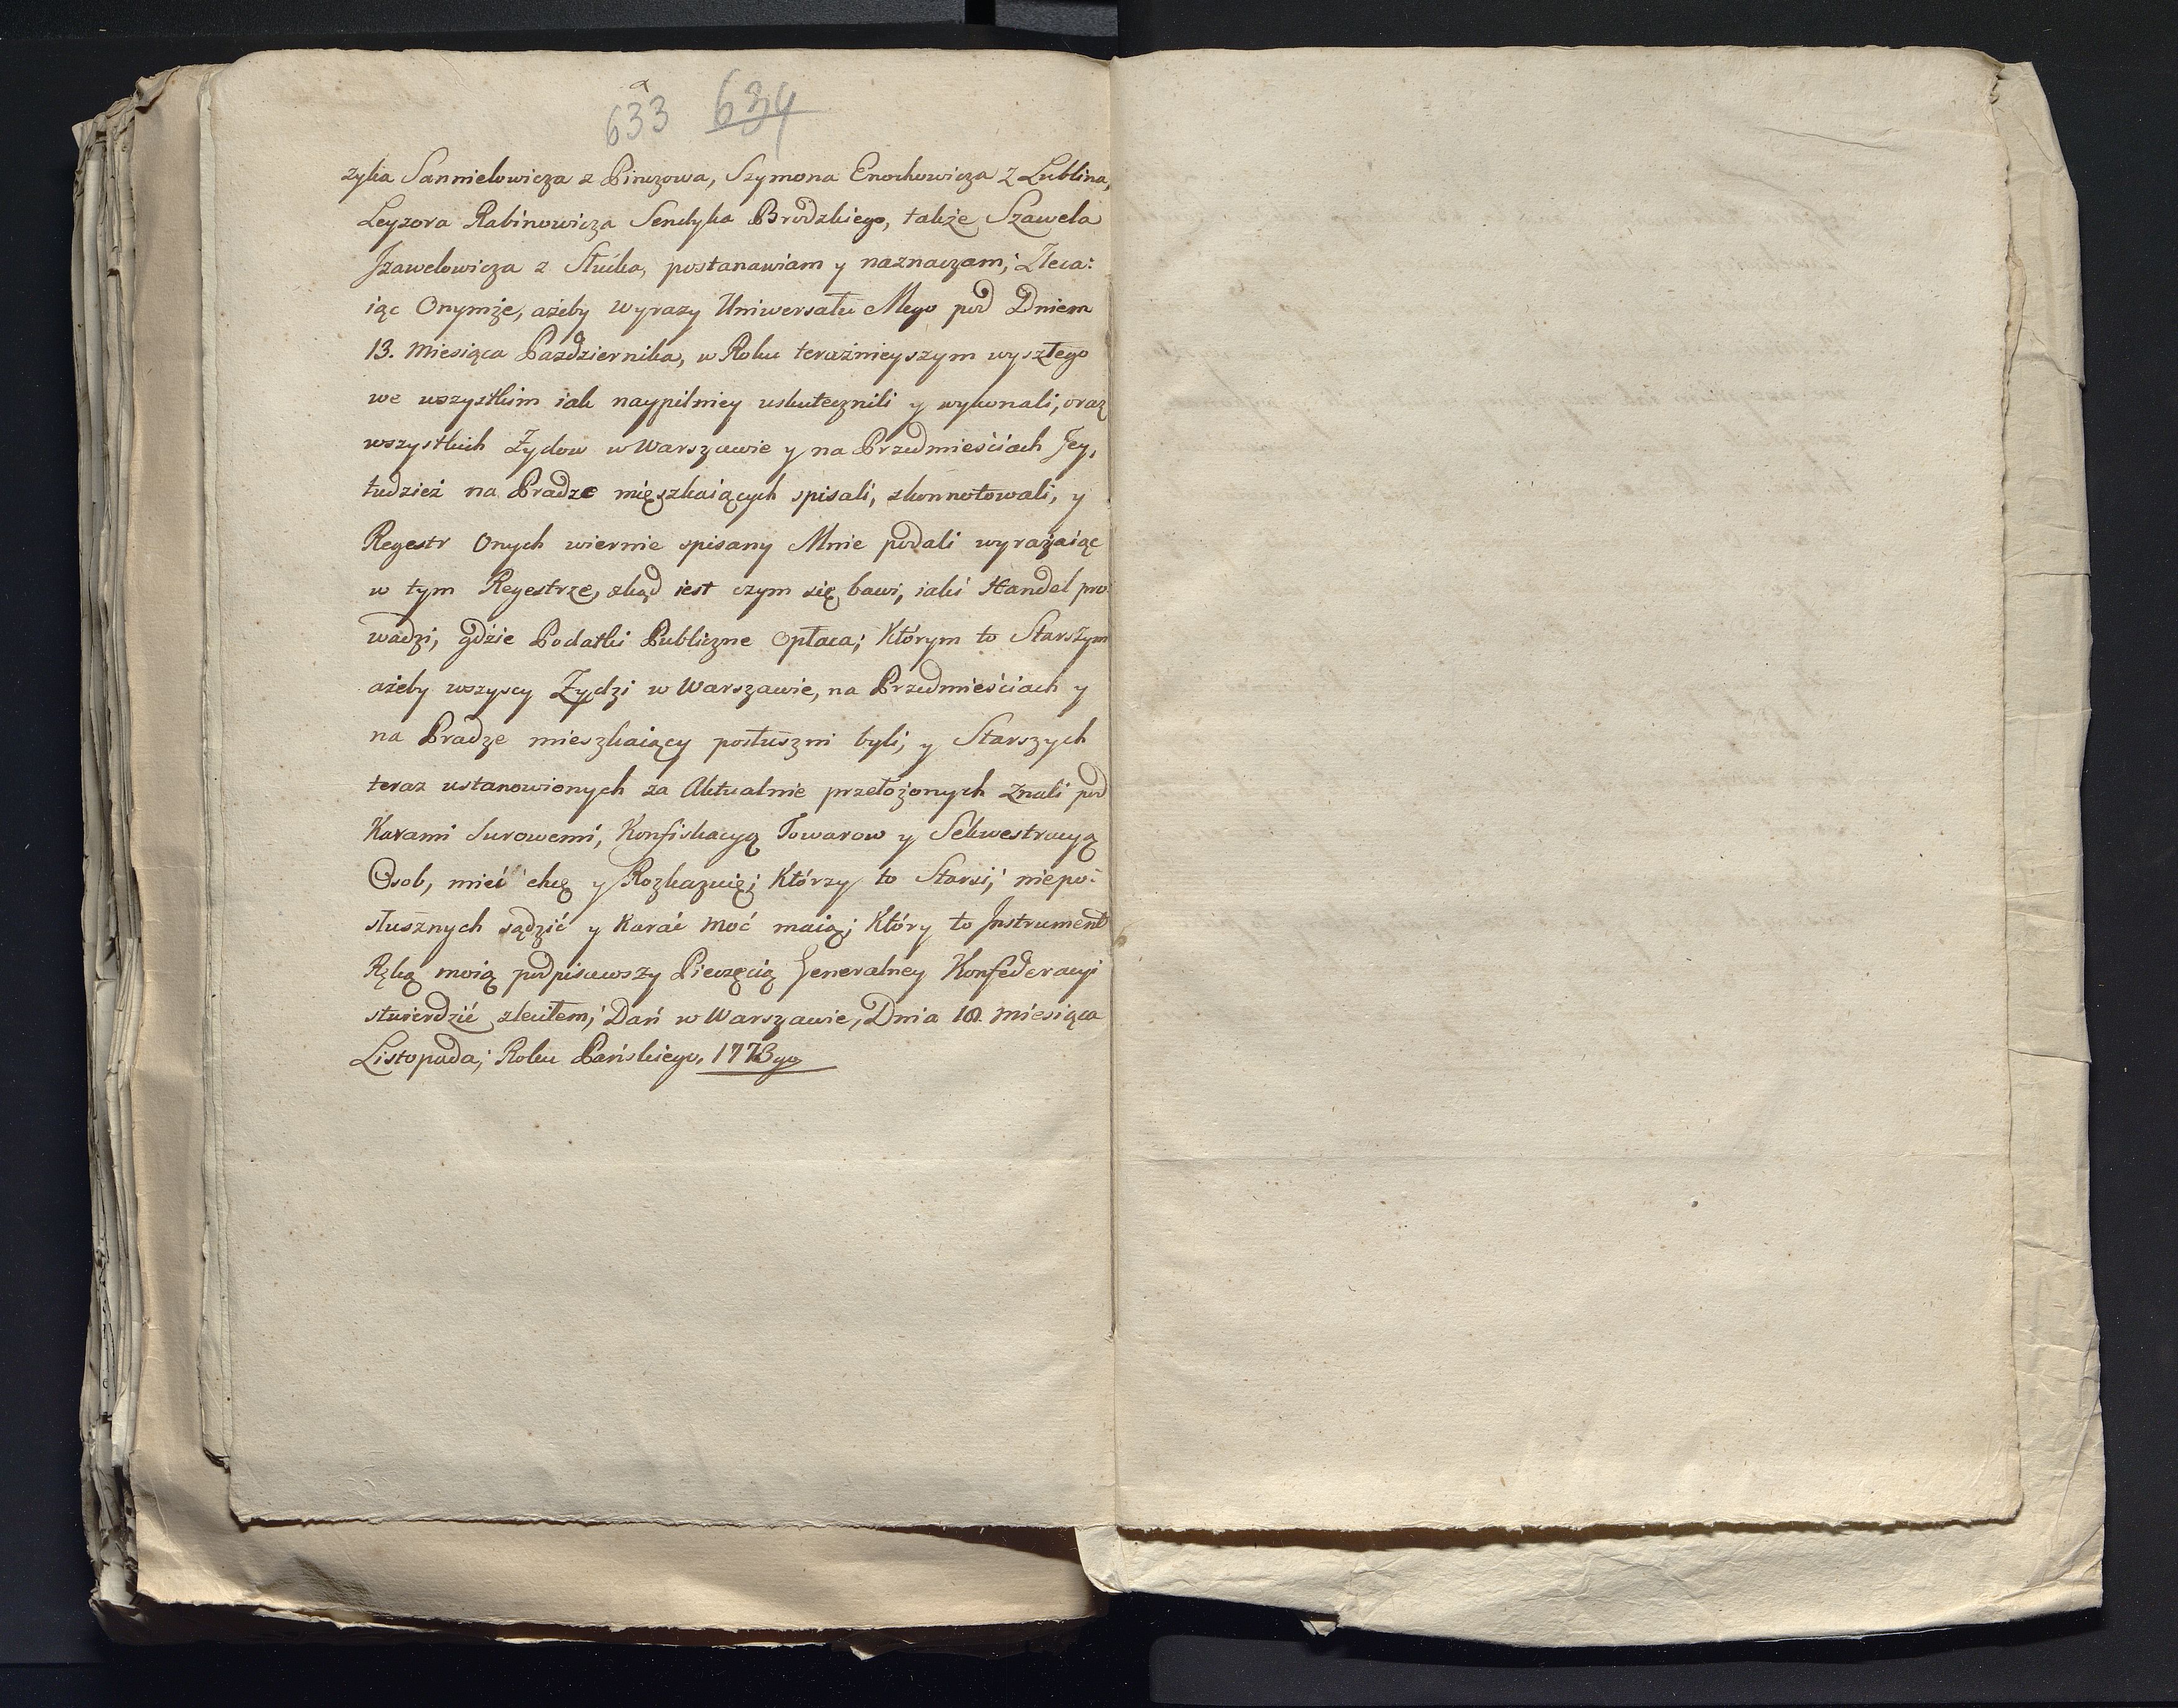 633 634
zyka Sannielowicza z Pinczowa, Szymona Enochowicza z Lublina,
Leyzora Rabinowicza Sendyka Brodzkiego, także Szawela
Jzawelowicza z Słucka, postanawiam y naznaczam; Zleca:
iąc Onymże, ażeby wyrazy Uniwersału Mego pod Dniem
13. Miesiąca Pazdziernika, w Roku teraźnieyszym wyszłego
we wszystkim iak naypilniey uskutecznili y wykonali, oraz
wszystkich Żydow w Warszawie y na Przedmieściach Jey,
tudzież na Pradze mięszkaiących spisali, skonnotowali, y
Regestr Onych wiernie spisany Mnie podali wyrażaiąc
w tym Regestrze, zkąd iest czym się bawi, iaki Handel pro
wadzi, gdzie Podatki Publiczne opłaca; Którym to Starszym
ażeby wszyscy Żydzi w Warszawie, na Przedmieściach y
na Pradze mieszkaiący posłuszni byli, y Starszych
teraz ustanowionych za Aktualnie przełożonych znali pod
Karami Surowemi, Konfiskacyą Towarow y Sekwestracyą
Osob, mieć chcę y Rozkazuię; Którzy to Starsi, niepo:
słusznych sądzić y karać moc maią; Który to Jnstrument
Ręką moią podpisawszy Pieczęcią Generalney Konfederacyi
stwierdzić zleciłem; Dań w Warszawie, Dnia 18. miesiąca
Listopada; Roku Pańskiego, 1773go